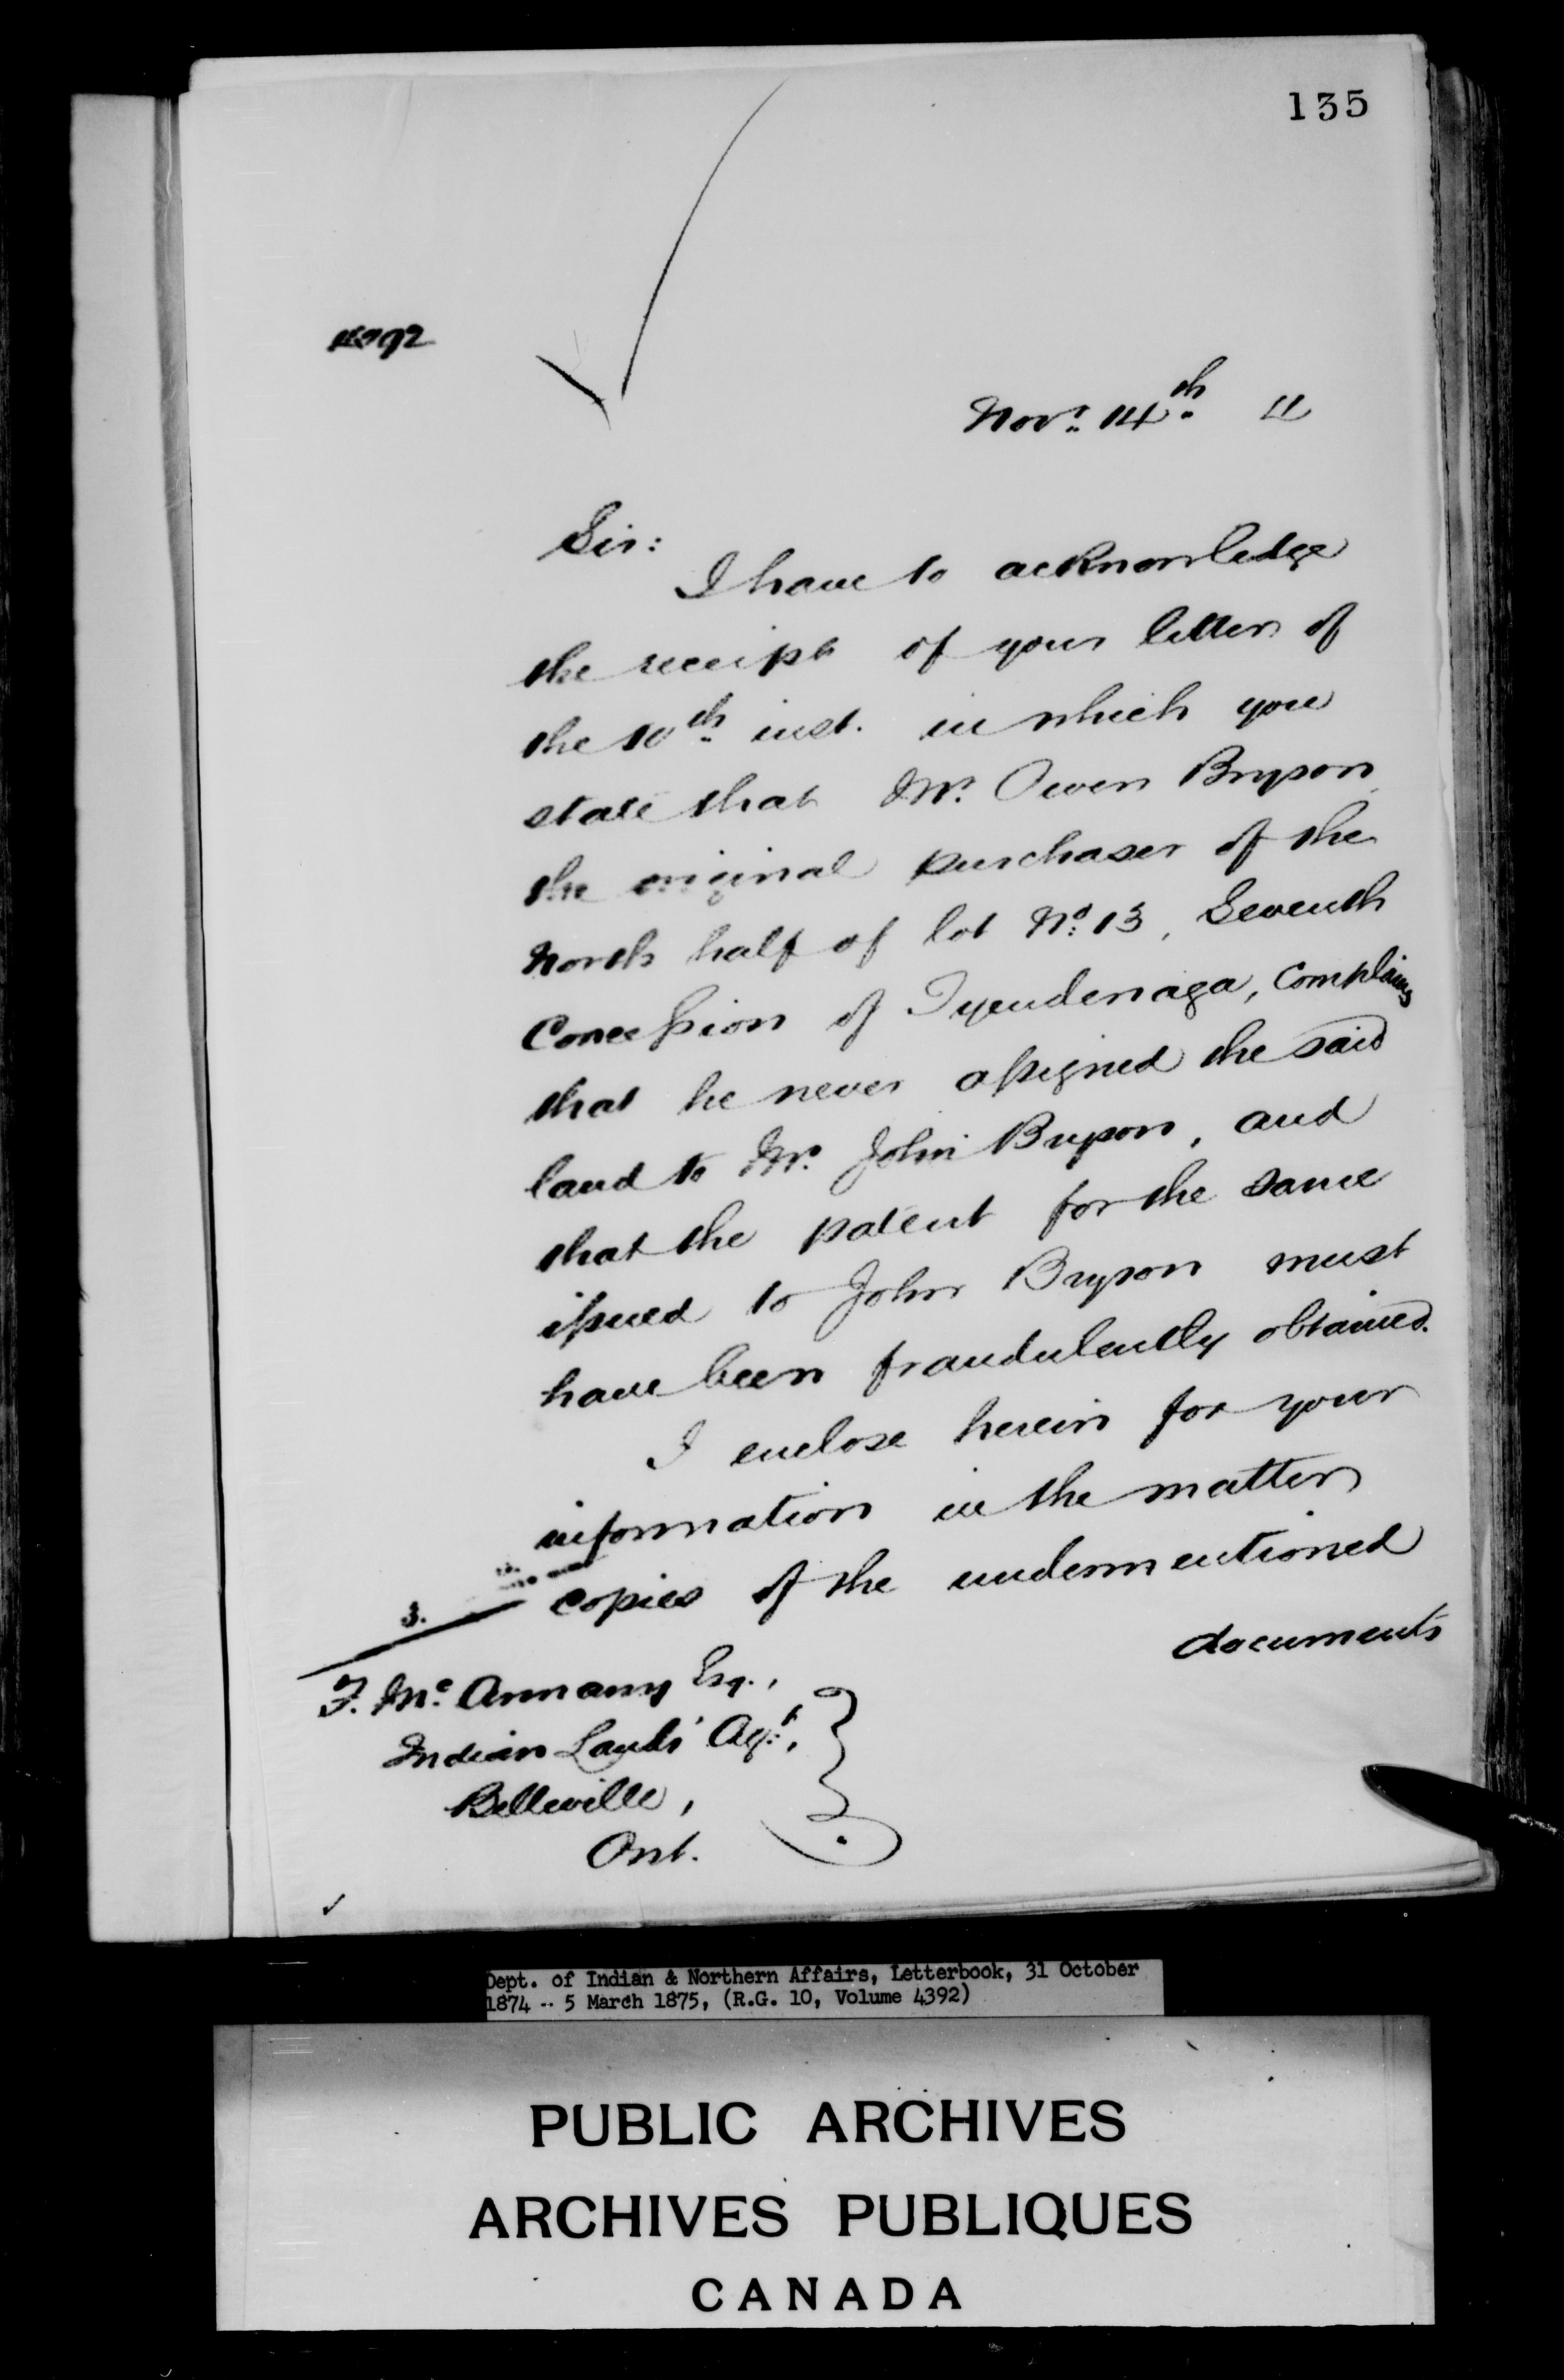 135
Novr. 14th 4
Sir:
I have to acknowledge
the receipt of your letter of
the 10th inst. in which you
state that Mr. Owen Bryson
the original purchaser of the
North half of lot No. 13, Seventh
Concession of Tyendenaga, complains
that he never assigned the said
land to Mr. John Bryson, and
that the patent for the same
issued to John Bryson must
have been fraudulently obtained.
I enclose herein for your
information in the matter
copies of the undermentioned
documents
3.
F. McAnnany Esq.,
Indian Lands' Agt.,
Belleville,
Ont.
Dept. of Indian & Northern Affairs, Letterbook, 31 October
1874 -- 5 March 1875, (R.G. 10, Volume 4392)
PUBLIC ARCHIVES
ARCHIVES PUBLIQUES
CANADA